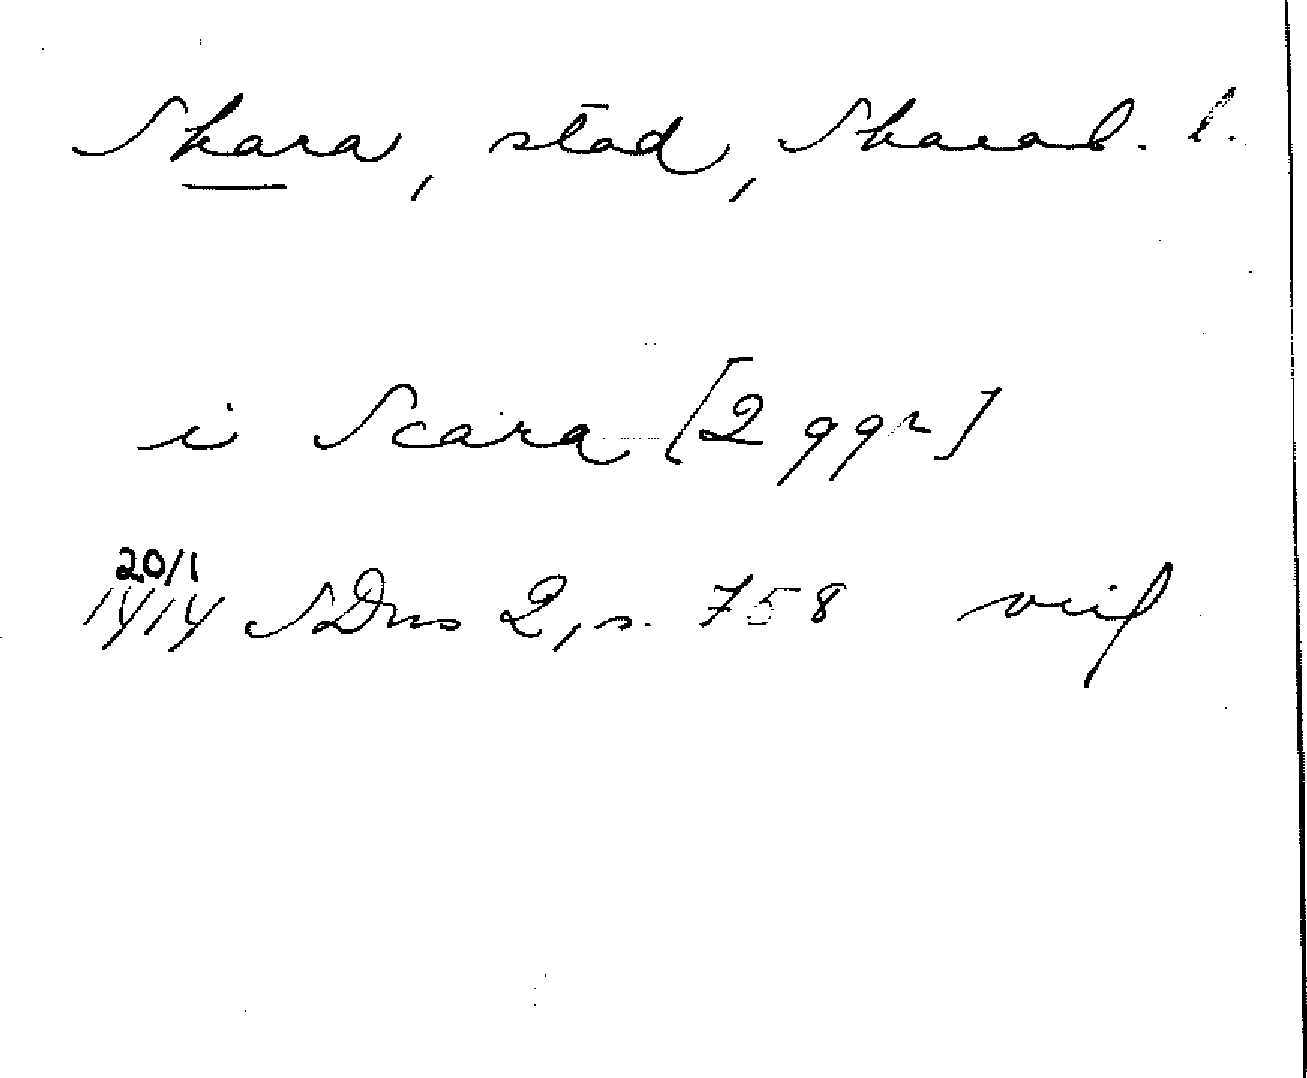 Skara, stad, Skarab. l.
i Scara [2 ggr]
20/1
1414 SDns 2, s. 758 orig